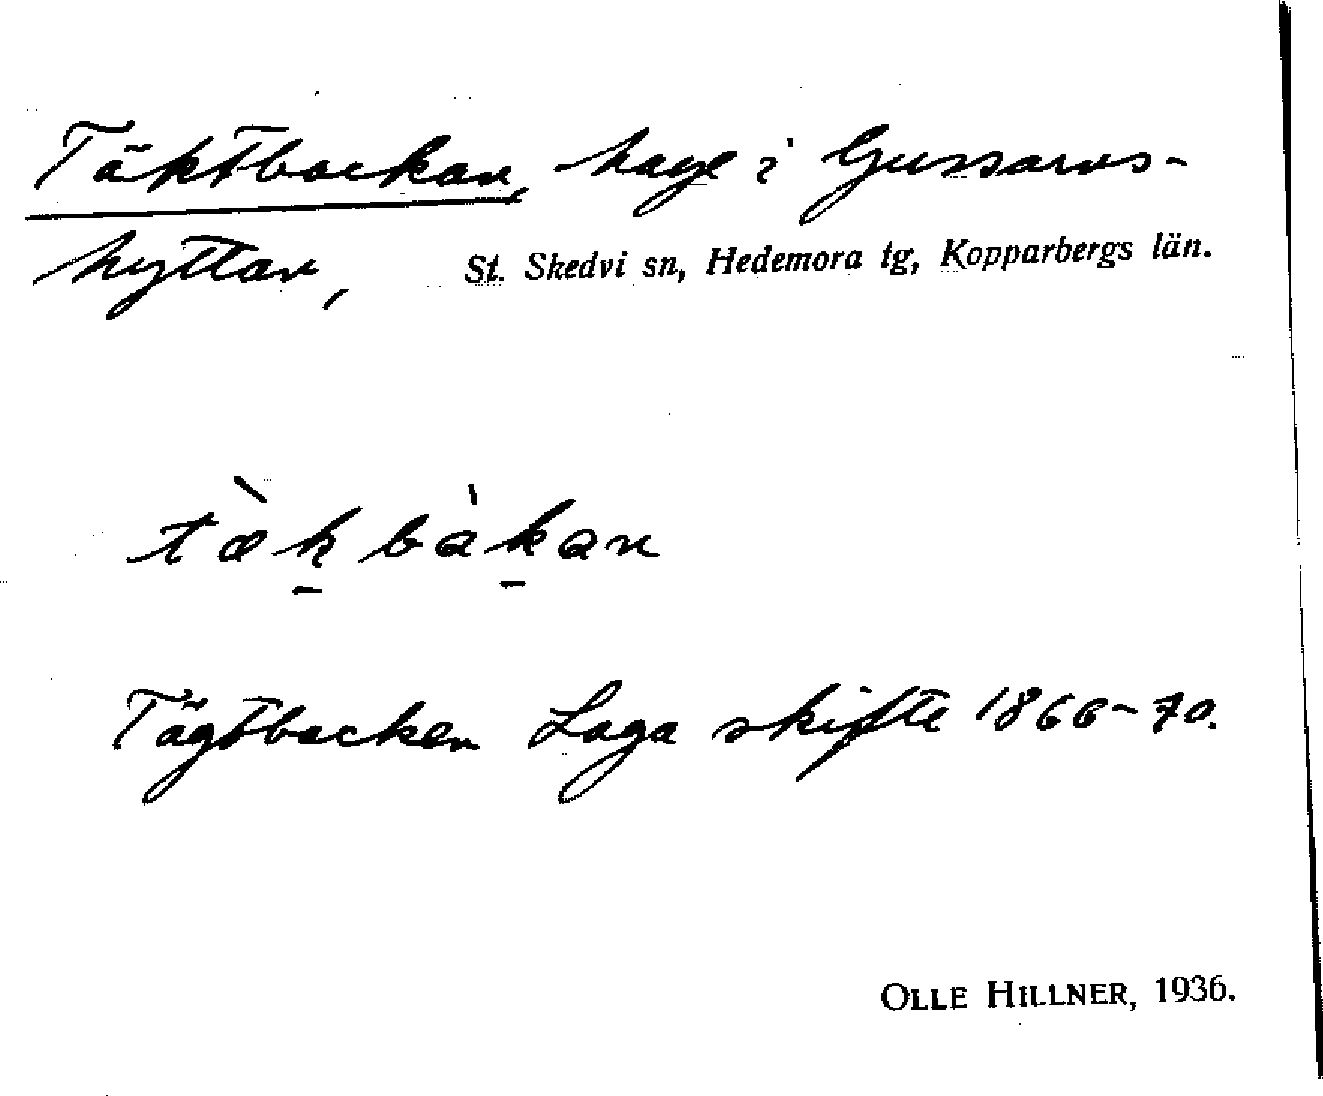 Täktbackan, hage i Gussarvs-
hyttan, St. Skedvi sn, Hedemora tg, Kopparbergs län.
tæ̀ḵ bàḵan
Tägtbacken Laga skifte 1866-70.
OLLE HILLNER, 1936.